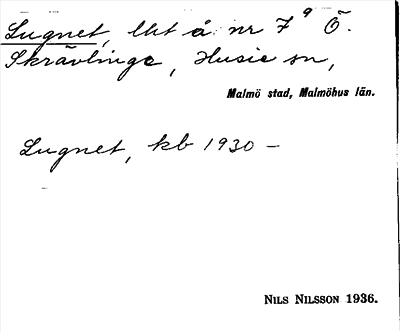 Lugnet, lht å nr 7⁹ Ö.
Skrävlinge, Husie sn,
Malmö stad, Malmöhus län.
Lugnet, kb 1930 –
NILS NILSSON 1936.